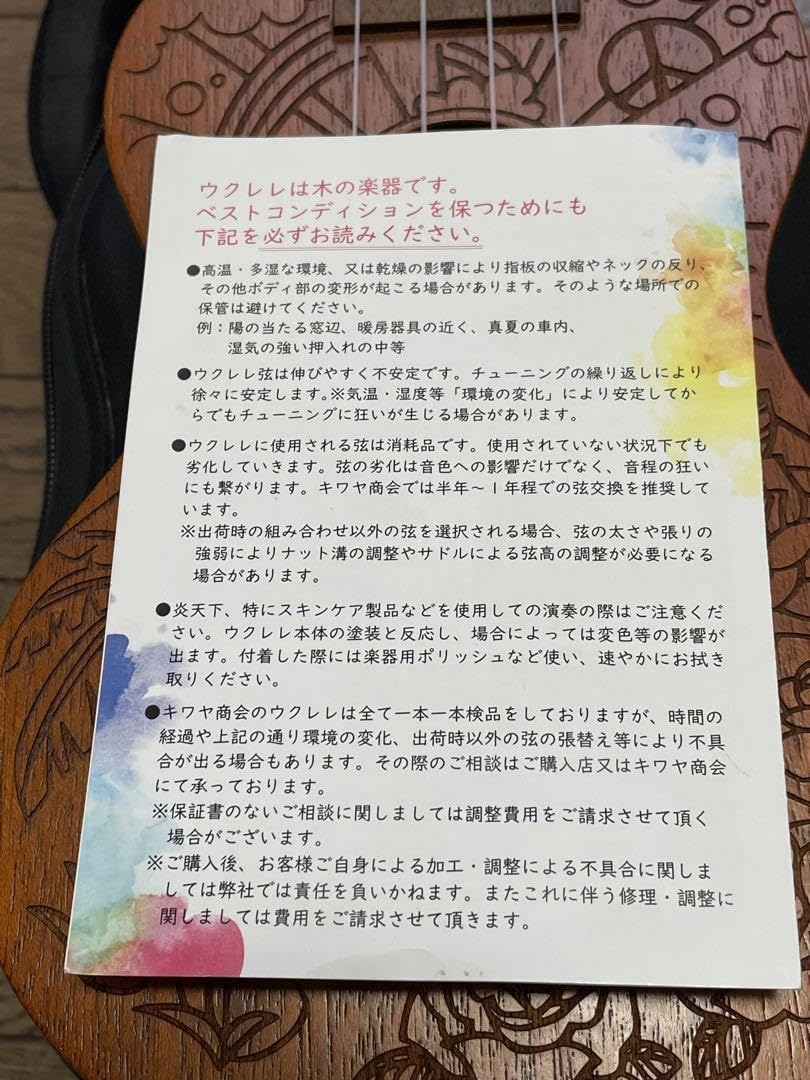 ウクレレは木の楽器です。
ベストコンディションを保つためにも
下記を必ずお読みください。
●高温・多湿な環境、又は乾燥の影響により指板の収縮やネックの反り、
その他ボディ部の変形が起こる場合があります。そのような場所での
保管は避けてください。
例：陽の当たる窓辺、暖房器具の近く、真夏の車内、
湿気の強い押入れの中等
●ウクレレ弦は伸びやすく不安定です。チューニングの繰り返しにより
徐々に安定します。※気温・湿度等「環境の変化」により安定してか
らでもチューニングに狂いが生じる場合があります。
●ウクレレに使用される弦は消耗品です。使用されていない状況下でも
劣化していきます。弦の劣化は音色への影響だけでなく、音程の狂い
にも繋がります。キワヤ商会では半年～1年程での弦交換を推奨して
います。
※出荷時の組み合わせ以外の弦を選択される場合、弦の太さや張りの
強弱によりナット溝の調整やサドルによる弦高の調整が必要になる
場合があります。
●炎天下、特にスキンケア製品などを使用しての演奏の際はご注意くだ
さい。ウクレレ本体の塗装と反応し、場合によっては変色等の影響が
出ます。付着した際には楽器用ポリッシュなど使い、速やかにお拭き
取りください。
●キワヤ商会のウクレレは全て一本一本検品をしておりますが、時間の
経過や上記の通り環境の変化、出荷時以外の弦の張替え等により不具
合が出る場合もあります。その際のご相談はご購入店又はキワヤ商会
にて承っております。
※保証書のないご相談に関しましては調整費用をご請求させて頂く
場合がございます。
※ご購入後、お客様ご自身による加工・調整による不具合に関しま
しては弊社では責任を負いかねます。またこれに伴う修理・調整に
関しましては費用をご請求させて頂きます。